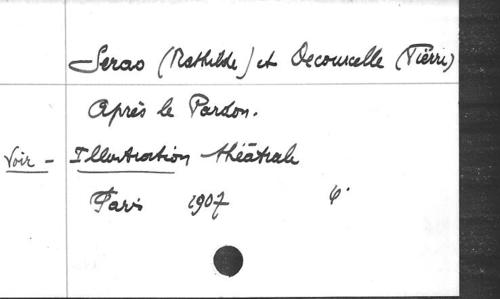 Serao (Mathilde) et Decourcelle (Pierre)
Après le Pardon.
Voir - Illustration théâtrale
Paris 1907 4°